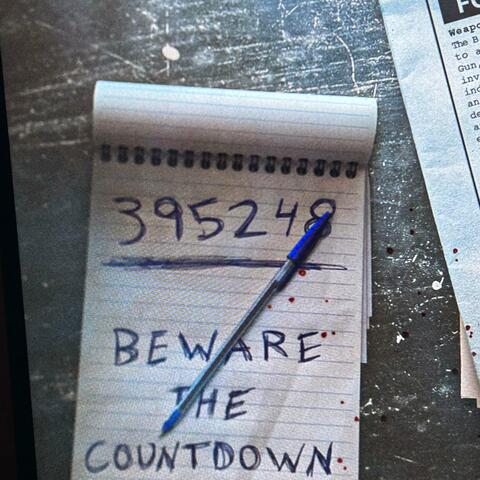 395248
BEWARE
THE
COUNTDOWN
FO
Weapo
The B
to a
Gun,
inv
ind
an
de
a
e